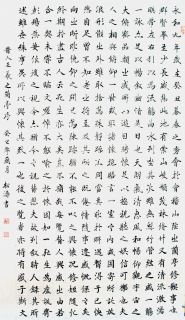 永和九年歲在癸丑暮春之初會於會稽山陰之蘭亭修禊事也
群賢畢至少長咸集此地有崇山峻嶺茂林修竹又有清流激湍
映帶左右引以為流觴曲水列坐其次雖無絲竹管弦之盛一觴
一詠亦足以暢敘幽情是日也天朗氣清惠風和暢仰觀宇宙之
大俯察品類之盛所以遊目騁懷足以極視聽之娛信可樂也夫
人之相與俯仰一世或取諸懷抱悟言一室之內或因寄所託放
浪形骸之外雖趣舍萬殊靜躁不同當其欣於所遇暫得於己快
然自足不知老之將至及其所之既倦情隨事遷感慨係之矣向
之所欣俯仰之間已為陳跡猶不能不以之興懷況修短隨化
終期於盡古人云死生亦大矣豈不痛哉每覽昔人興感之由若
合一契未嘗不臨文嗟悼不能喻之於懷固知一死生為虛誕齊
彭殤為妄作後之視今亦猶今之視昔悲夫故列敘時人錄其所
述雖世殊事異所以興懷其致一也後之覽者亦將有感於斯文
晉人王羲之蘭亭序 癸巳年蘭月 松濤書